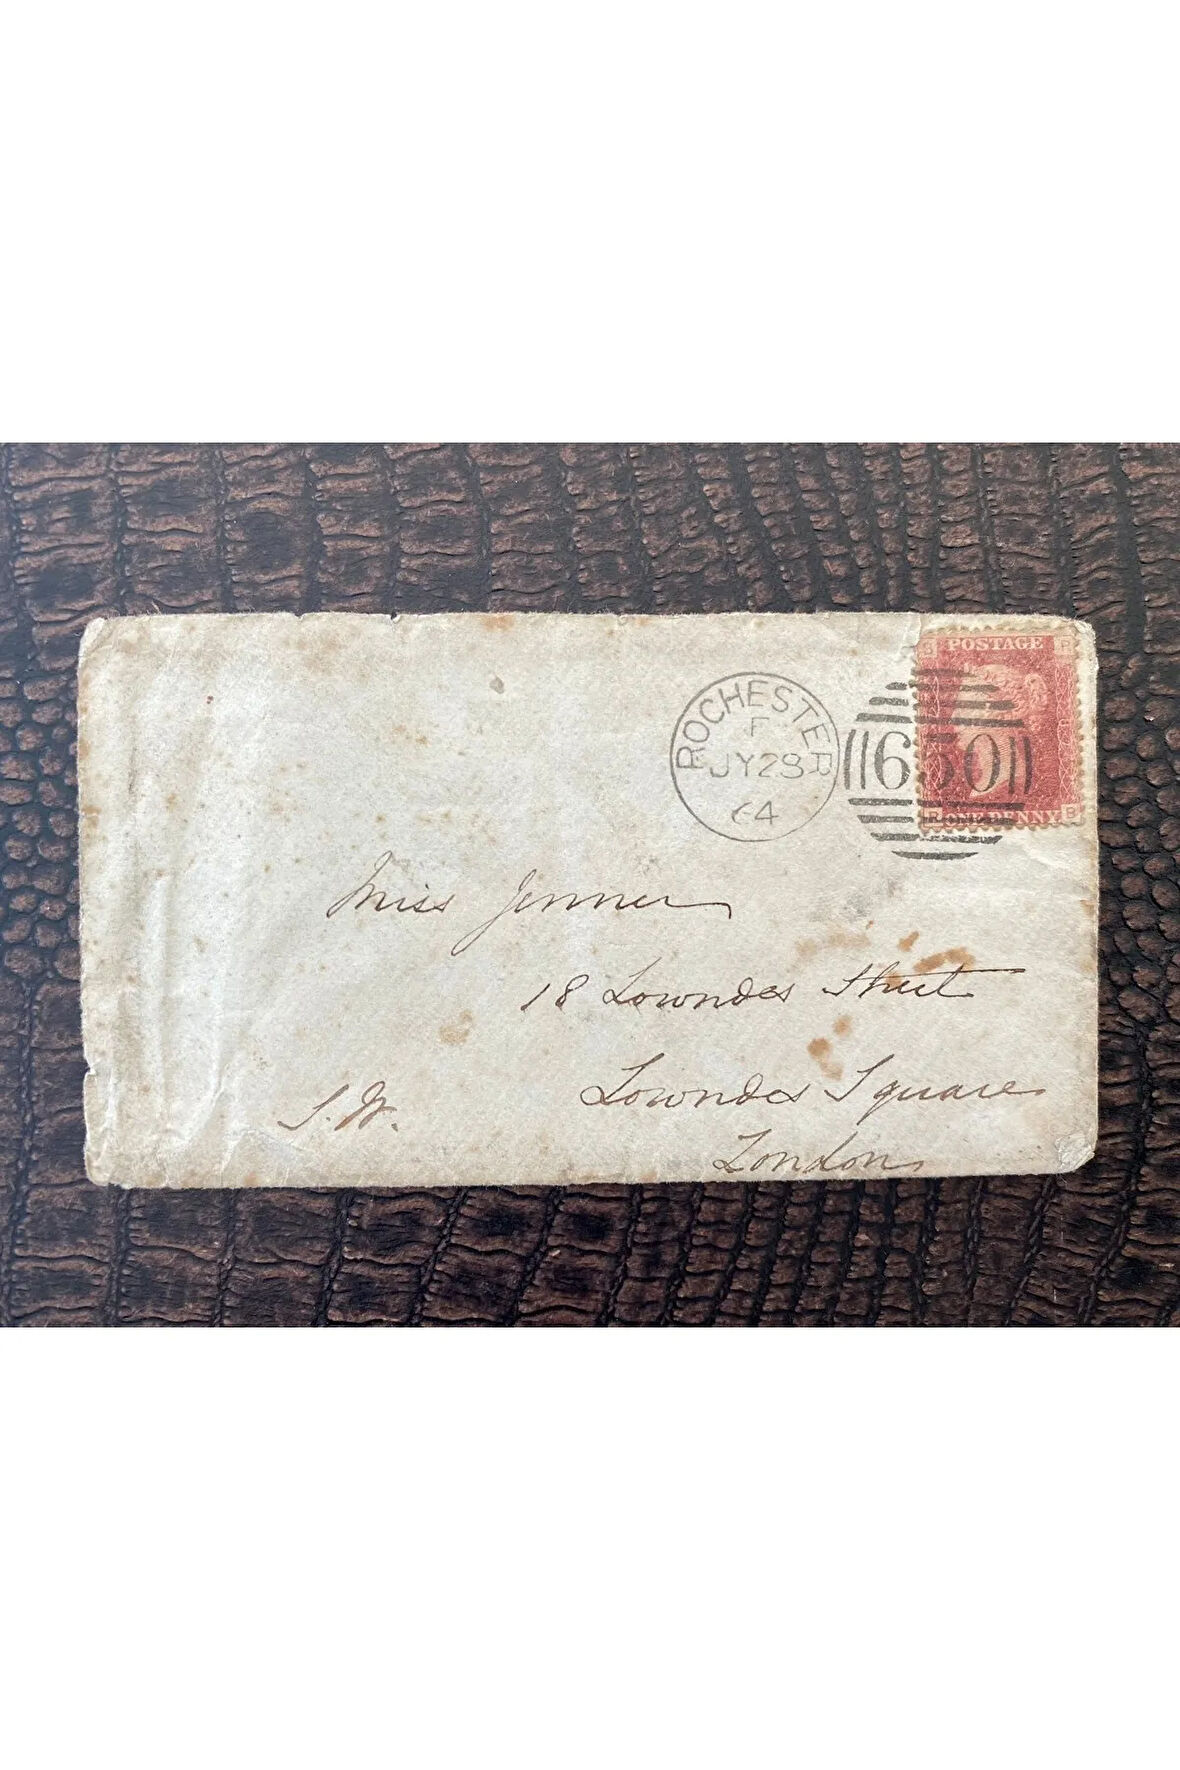 POSTAGE
ROCHESTER
F
JY 28
64
650
ONE PENNY
Miss Jenner
18 Lowndes Street
Lowndes Square
London
S.W.